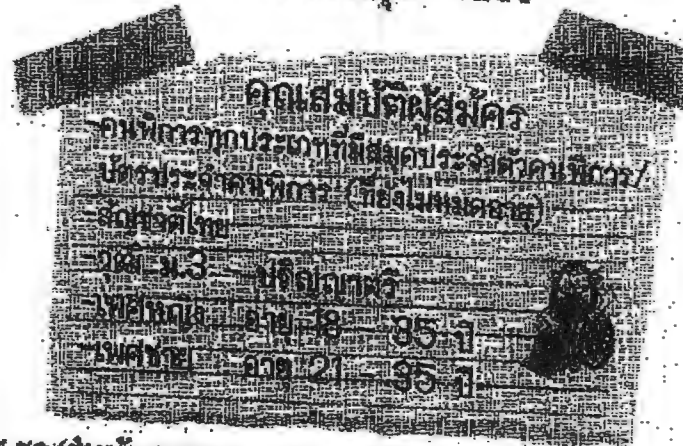 คุณสมบัติผู้สมัคร
-คนพิการทุกประเภทที่มีสมุดประจำตัวคนพิการ/
บัตรประจำคนพิการ (ที่ยังไม่หมดอายุ)
-สัญชาติไทย
-วุฒิ ม.3 - ปริญญาตรี
-เพศหญิง อายุ 18 - 35 ปี
-เพศชาย อายุ 21 - 35 ปี